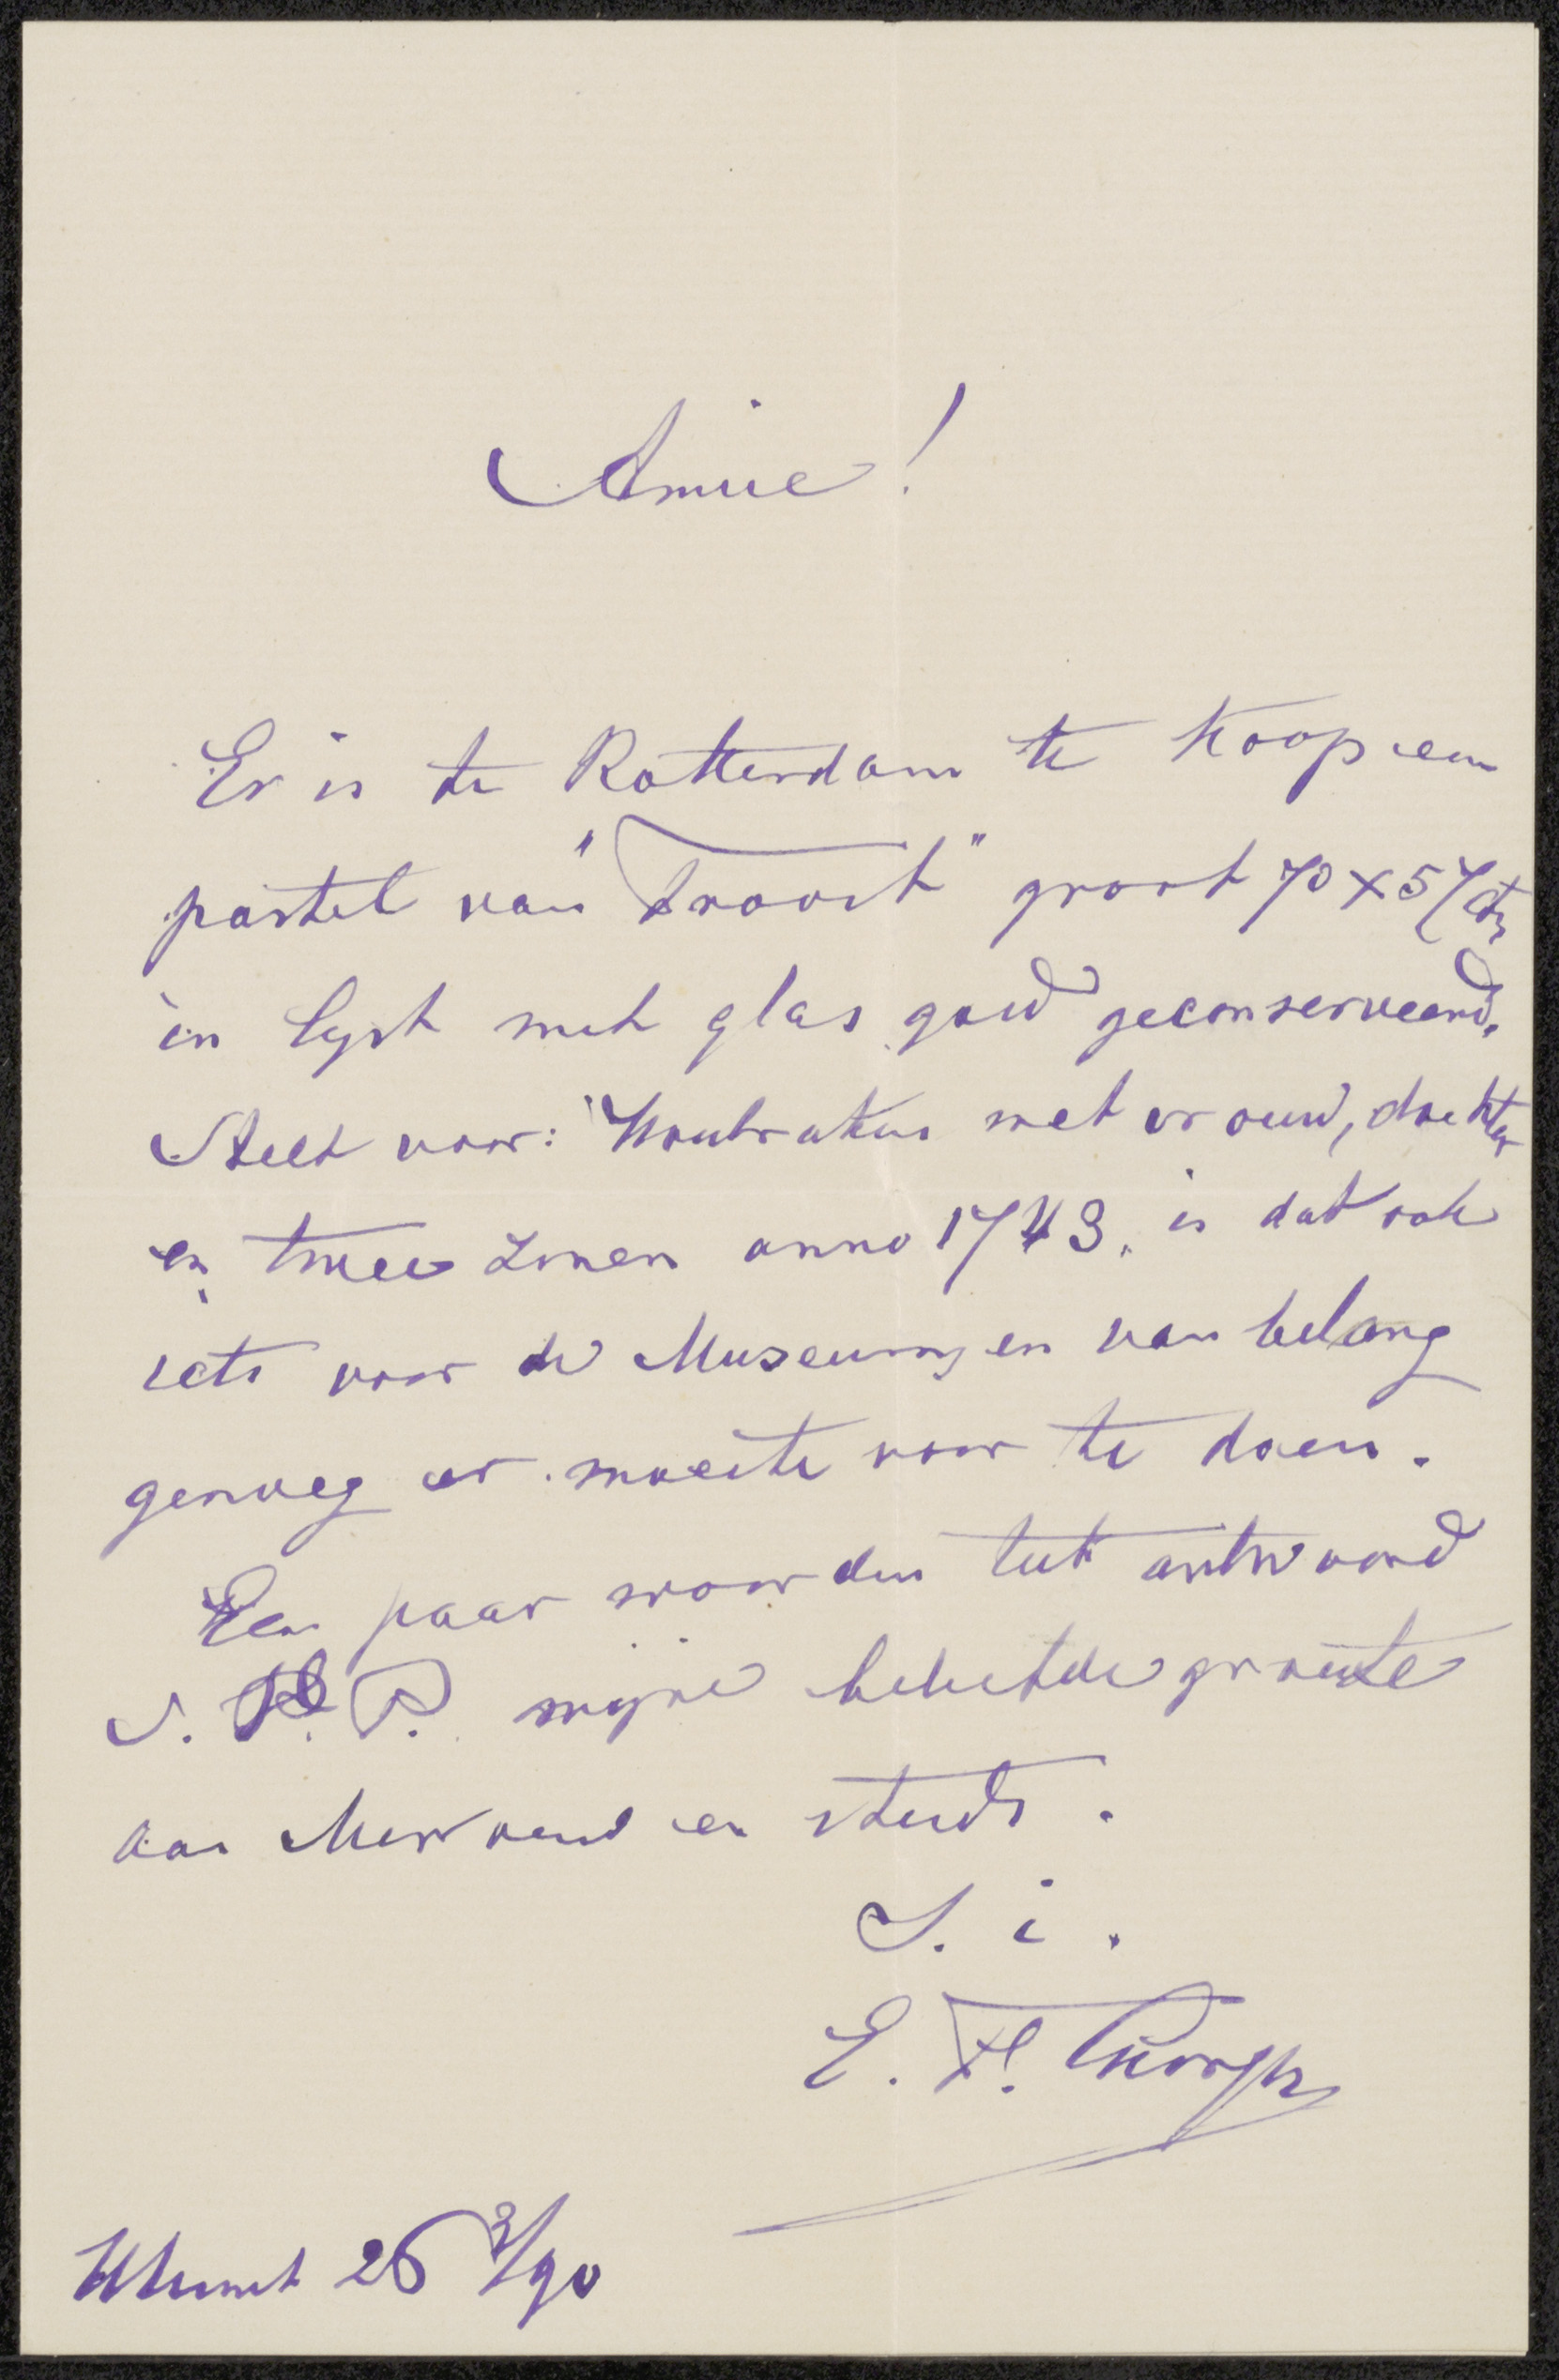 Amice!
Er is te Rotterdam te Koop een
pastel van "Troost" groot 70 x 57 ctr
in lyst met glas goed geconserveerd.
Stelt voor: Houbraken met vrouw, dochter
en twee zonen anno 1743. is dat ook
iets voor de Museums en van belang
genoeg er moeite voor te doen.
Een paar woorden tot antwoord
S. V. P. mijne beleefde groete
aan Mevrouw en steeds.
t. t.
E. F.
Utrecht 26 3/90